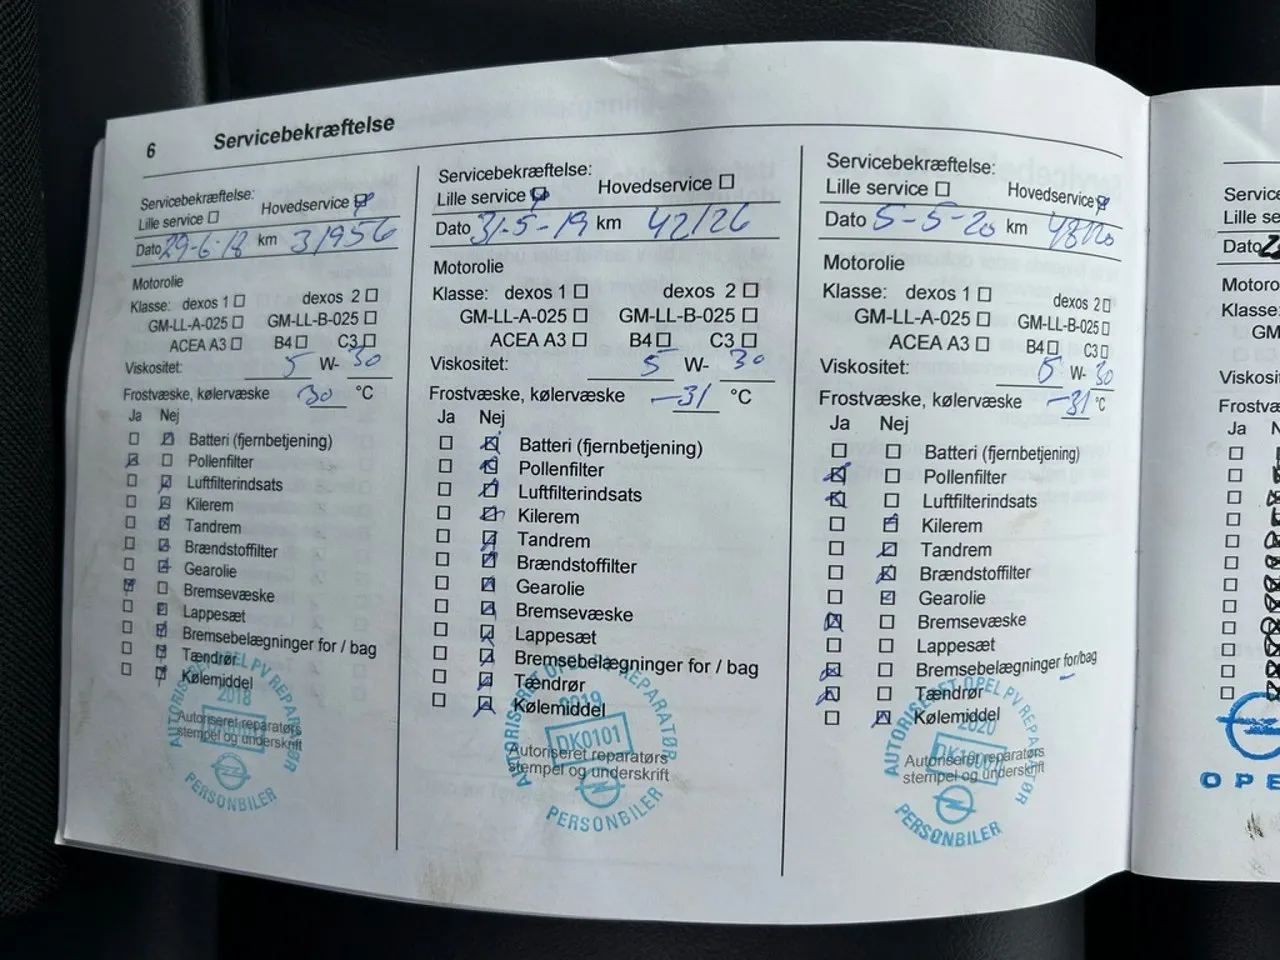 6 Servicebekræftelse
Servicebekræftelse:
Lille service ☐ Hovedservice ☑
Dato 29-6-18 km 31956
Motorolie
Klasse: dexos 1 ☐ dexos 2 ☐
GM-LL-A-025 ☐ GM-LL-B-025 ☐
ACEA A3 ☐ B4 ☐ C3 ☐
Viskositet: 5 W- 30
Frostvæske, kølervæske 30 °C
Ja Nej
☐ ☑ Batteri (fjernbetjening)
☑ ☐ Pollenfilter
☐ ☑ Luftfilterindsats
☐ ☑ Kilerem
☐ ☑ Tandrem
☐ ☑ Brændstoffilter
☐ ☑ Gearolie
☑ ☐ Bremsevæske
☐ ☑ Lappesæt
☐ ☑ Bremsebelægninger for / bag
☐ ☑ Tændrør
☐ ☑ Kølemiddel
Autoriseret reparatørs
stempel og underskrift
AUTORISERET OPEL PV REPARATØR
2018
PERSONBILER
Servicebekræftelse:
Lille service ☑ Hovedservice ☐
Dato 31-5-19 km 42126
Motorolie
Klasse: dexos 1 ☐ dexos 2 ☐
GM-LL-A-025 ☐ GM-LL-B-025 ☐
ACEA A3 ☐ B4 ☐ C3 ☐
Viskositet: 5 W- 30
Frostvæske, kølervæske -31 °C
Ja Nej
☐ ☑ Batteri (fjernbetjening)
☐ ☑ Pollenfilter
☐ ☑ Luftfilterindsats
☐ ☑ Kilerem
☐ ☑ Tandrem
☐ ☑ Brændstoffilter
☐ ☑ Gearolie
☐ ☑ Bremsevæske
☐ ☑ Lappesæt
☐ ☑ Bremsebelægninger for / bag
☐ ☑ Tændrør
☐ ☑ Kølemiddel
Autoriseret reparatørs
stempel og underskrift
AUTORISERET OPEL PV REPARATØR
2019
DK0101
PERSONBILER
Servicebekræftelse:
Lille service ☐ Hovedservice ☑
Dato 5-5-20 km
Motorolie
Klasse: dexos 1 ☐ dexos 2 ☐
GM-LL-A-025 ☐ GM-LL-B-025 ☐
ACEA A3 ☐ B4 ☐ C3 ☐
Viskositet: 5 W- 30
Frostvæske, kølervæske -31 °C
Ja Nej
☐ ☐ Batteri (fjernbetjening)
☑ ☐ Pollenfilter
☑ ☐ Luftfilterindsats
☐ ☑ Kilerem
☐ ☑ Tandrem
☐ ☑ Brændstoffilter
☐ ☑ Gearolie
☑ ☐ Bremsevæske
☐ ☐ Lappesæt
☑ ☐ Bremsebelægninger for/bag
☑ ☐ Tændrør
☐ ☑ Kølemiddel
Autoriseret reparatørs
stempel og underskrift
AUTORISERET OPEL PV REPARATØR
2020
PERSONBILER
Servic
Lille se
Dato
Motoro
Klasse
GM
Viskosi
Frostv
Ja N
OPE